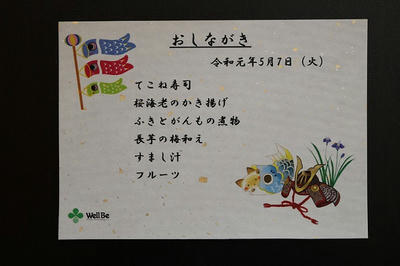 おしながき
令和元年5月7日（火）
てこね寿司
桜海老のかき揚げ
ふきとがんもの煮物
長芋の梅和え
すまし汁
フルーツ
WellBe